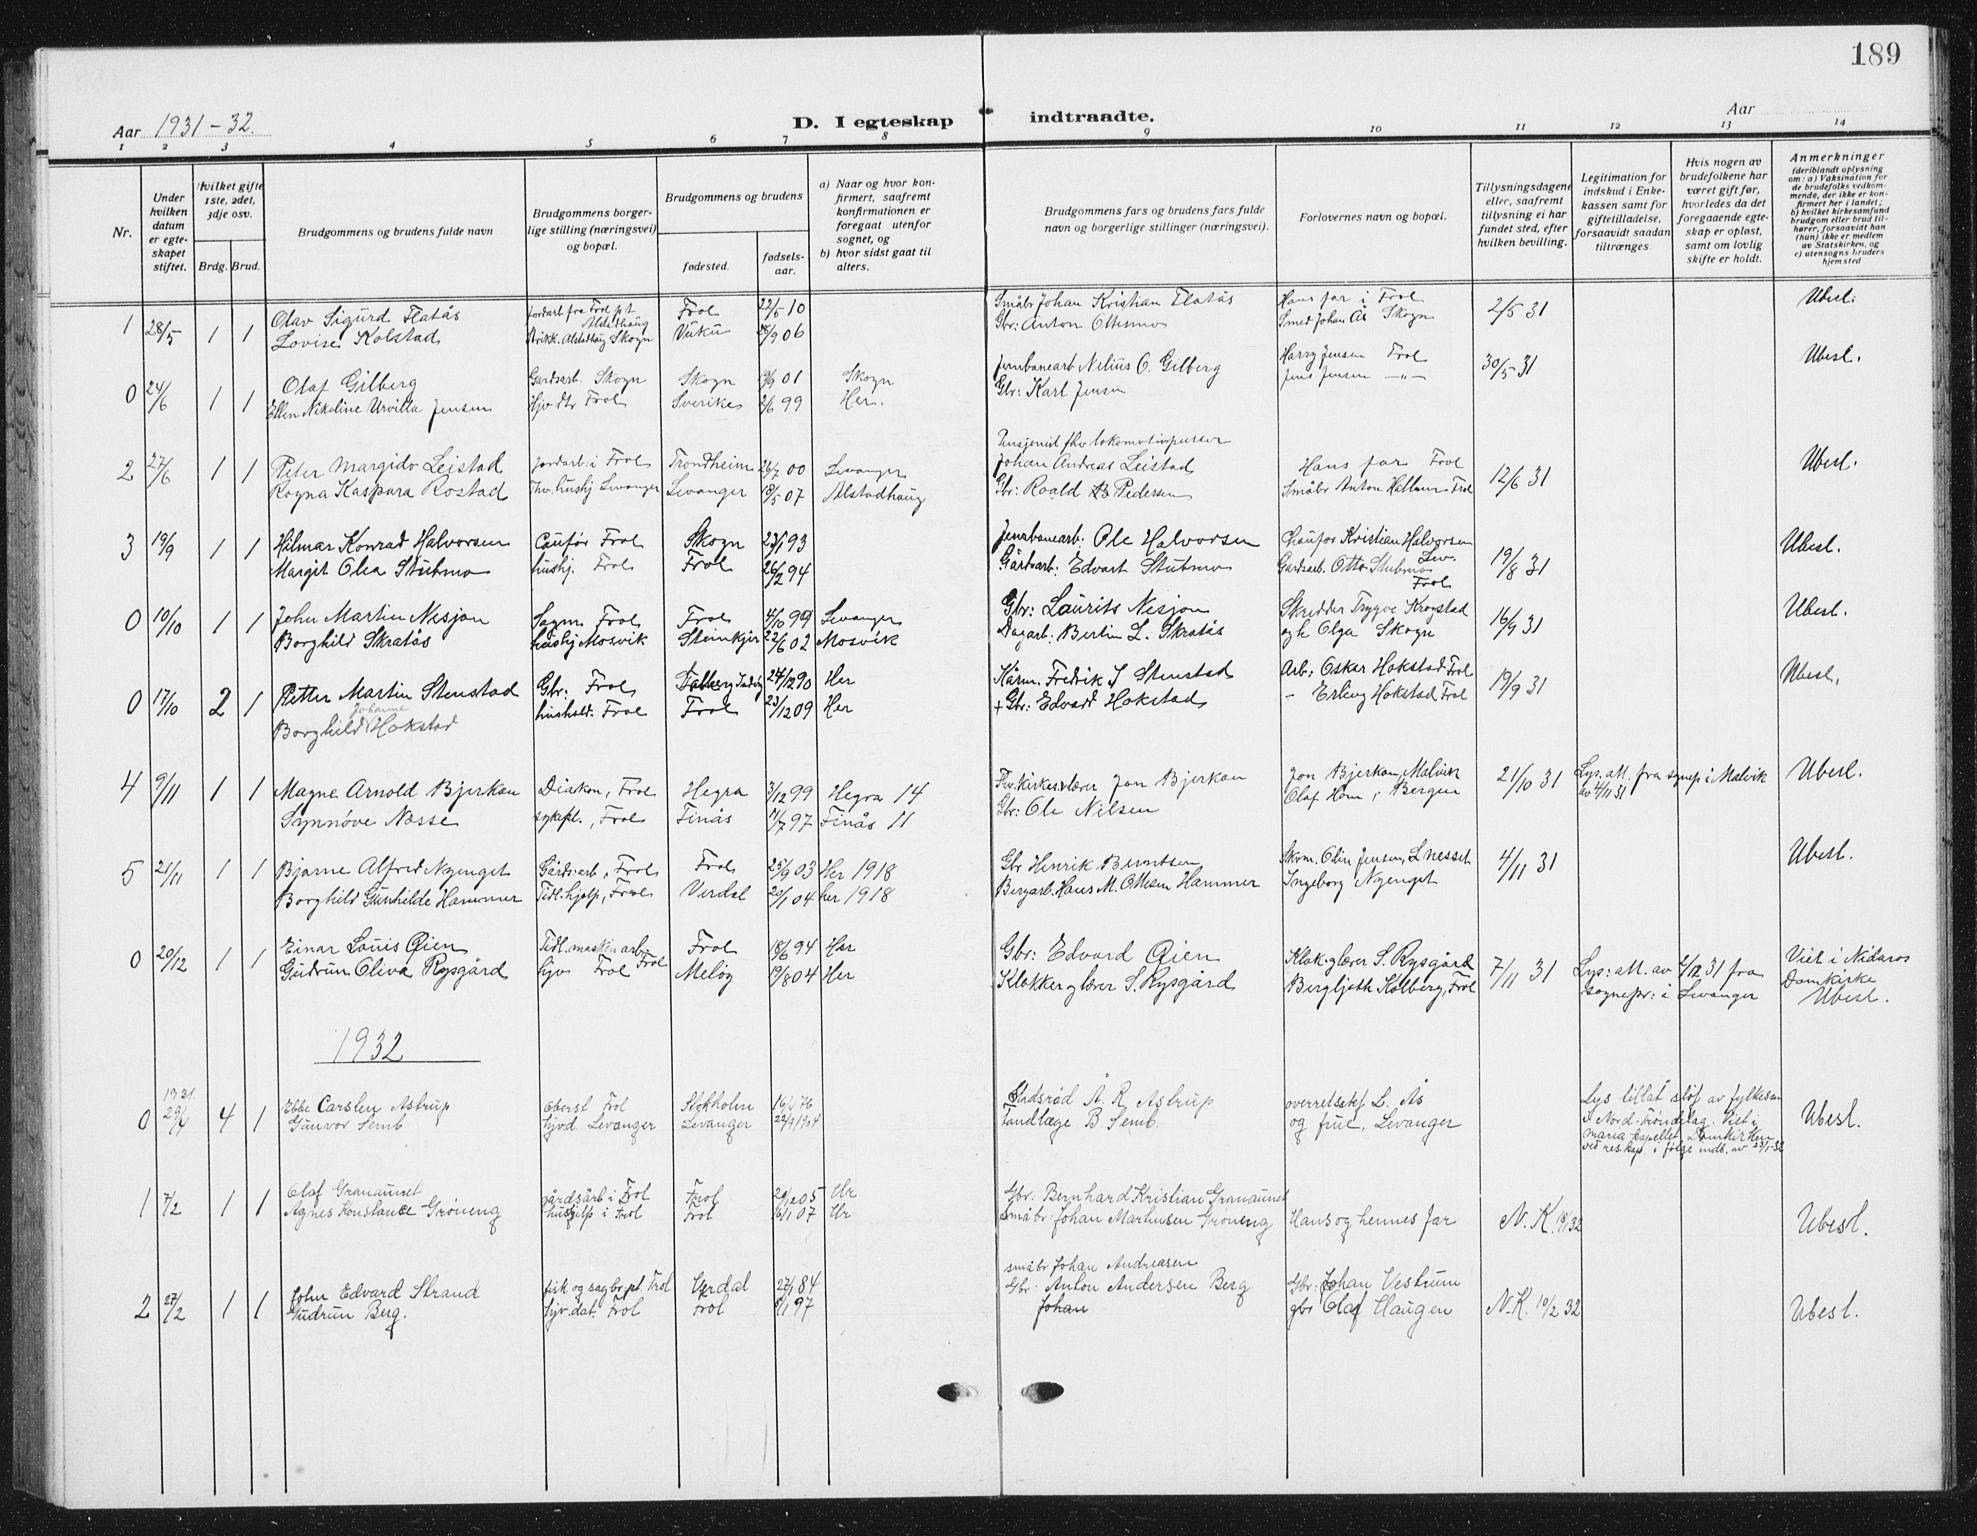 189
Aar 1931-32.
D. I egteskap indtraadte.
Aar
1 2 3 4 5 6 7 8 9 10 11 12 13 14
Nr.
Under hvilken datum er egteskapet stiftet.
Hvilket gifte 1ste, 2det, 3dje osv.
Brdg. Brud.
Brudgommens og brudens fulde navn
Brudgommens borgerlige stilling (næringsvei) og bopæl.
Brudgommens og brudens
fødested.
fødselsaar.
a) Naar og hvor konfirmert, saafremt konfirmationen er foregaat utenfor sognet, og
b) hvor sidst gaat til alters.
Brudgommens fars og brudens fars fulde navn og borgerlige stillinger (næringsvei).
Forlovernes navn og bopæl.
Tillysningsdagene eller, saafremt tillysning ei har fundet sted, efter hvilken bevilling.
Legitimation for indskud i Enkekassen samt for giftetilladelse, forsaavidt saadan tiltrænges
Hvis nogen av brudefolkene har været gift før, hvorledes da det foregaaende egteskap er opløst, samt om lovlig skifte er holdt.
Anmerkninger (deriblandt oplysning om: a) Vaksination for de brudefolks vedkommende, der ikke er konfirmert her i landet; b) hvilket kirkesamfund brudgom eller brud tilhører, forsaavidt han (hun) ikke er medlem av Statskirken, og c) utensogns bruders hjemsted
1 28/5 1 1 Olav Sigurd Flatås Frol 22/5 10 Småbr Johan Kristian Flatås Hans far i Frol 2/5 31 Ubesl.
Lovise Kolstad Strikk. Alstadhaug Skogn Vuku 28/9 06 Gbr: Anton Ottesmo Smed Johan Ås Skogn
0 24/6 1 1 Olaf Gilberg Gardsarb. Skogn Skogn 19/9 01 Skogn Jernbanearb Nelius O. Gilberg Harry Jensen Frol 30/5 31 Ubesl.
Ellen Nikoline Urvilla Jensen Hjv. dtr Frol Sverike 2/6 99 Her. Gbr: Karl Jensen Jens Jensen —"—
Pensjonist fhv lokomotivpusser
2 27/6 1 1 Peter Margido Leistad Jordarb. i Frol Trondheim 26/7 00 Levanger Johan Andreas Leistad Hans far Frol 12/6 31 Ubesl.
Ragna Kaspara Rostad Thv. hushj Levanger Levanger 18/5 07 Alstadhaug Gbr: Roald Pedersen Småbr Anton Hallem Frol
3 19/9 1 1 Hilmar Konrad Halvorsen Caufør Frol Skogn 23/1 93 Jernbanearb. Ole Halvorsen Chaufør Kristian Halvorsen Lev. 19/8 31 Ubesl.
Margit Olea Stubmo hushj. Frol Frol 26/2 94 Gårdsarb. Edvart Stubmo Gardsarb. Otto Stubmo Frol
0 10/10 1 1 John Martin Nesjan Sagm. Frol Frol 4/10 99 Levanger Gbr: Laurits Nesjan Skredder Trygve Krogstad 16/9 31 Ubesl.
Borghild Skratås hushj Mosvik Steinkjer 22/6 02 Mosvik Dagarb: Bertin L. Skratås og fr Olga Skogn
0 17/10 2 1 Petter Martin Stenstad Gbr. Frol 24/12 90 Her Kårm. Fredrik J Stenstad Arb: Oskar Hokstad Frol 19/9 31 Ubesl.
Borghild Johanne Hokstad hushold. Frol Frol 23/12 09 Her + Gbr: Edvard Hokstad – Erling Hokstad Frol
4 9/11 1 1 Magne Arnold Bjerkan Diakon, Frol Hegra 3/12 99 Hegra 14 Fhv. Kirkesanger Jon Bjerkan Jon Bjerkan, Malvik 21/10 31 Lys. att. fra sognep. i Malvik Ubesl.
Synnøve Nesse sykepl., Frol Finås 11/7 97 Finås 11 Gbr: Ole Nilsen Olaf Hom i Bergen av 4/11 31
5 21/11 1 1 Bjarne Alfred Nyenget Gårdsarb, Frol Frol 25/9 03 Her 1918 Gbr Henrik Berntsen Skom. Olin Jensen, Lnesset 4/11 31 Ubesl.
Borghild Gunhilde Hammer Tidl. hjelp, Frol Verdal 20/1 04 her 1918 Bergarb. Hans M. Ottesen Hammer Ingeborg Nyenget
0 20/12 1 1 Einar Louis Øien Tidl. maskinarb. Frol Frol 18/6 94 Her Gbr: Edvard Øien Klok. og lærer S. Rysgård 7/11 31 Lys: att. av 2/12 31 fra Viet i Nidaros
Gudrun Oliva Rysgård hjv Frol Meløy 19/8 04 Her Klokker og lærer S. Rysgård Bergljoth Kolberg, Frol sognepr: i Levanger Domkirke Ubesl.
1932
0 1931 29/4 4 1 Ebbe Carsten Astrup Oberst Frol Stokholm 16/4 76 Statsråd A. R. Astrup overretssakf L. Ås Lys tillat sløf av fylkesm Ubesl.
Gunvor Semb hjvd. Levanger Levanger 22/9 1904 Tandlæge B. Semb. og frue, Levanger i Nord-Trøndelag. Viet i
maria kapellet, Domkirken
ved res. kap. i følge indb. av 23/1-32
1 7/2 1 1 Olaf Granaunet gårdsarb i Frol Frol 05 Ur Gbr: Bernhard Kristian Granaunet
Agnes Konstance Grøneng hushjelp i Frol Frol 6/1 07 Ur Småbr: Johan Martinsen Grøneng Hans og hennes far N.K. 19/1 32 Ubesl.
småbr Johan Andreasen
2 27/2 1 1 John Edvard Strand fisk og sagbr. pt. Frol Verdal 27/1 84 Gbr. Anton Andersen Berg Gbr: Johan Vestrum
Gudrun Berg. hjv. dat. Frol Frol 8/1 97 Johan gbr Olaf Haugen N.K. 10/2 32 Ubesl.